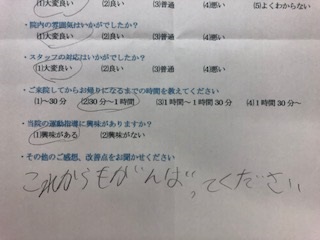 (1)大変良い (2)良い (3)普通 (4)悪い (5)よくわからない
・院内の雰囲気はいかがでしたか?
(1)大変良い (2)良い (3)普通 (4)悪い
・スタッフの対応はいかがでしたか?
(1)大変良い (2)良い (3)普通 (4)悪い
・ご来院してからお帰りになるまでの時間を教えてください
(1)~30分 (2)30分~1時間 (3)1時間~1時間30分 (4)1時間30分~
・当院の運動指導に興味がありますか?
(1)興味がある (2)興味がない
・その他のご感想、改善点をお聞かせください
これからもがんばってください